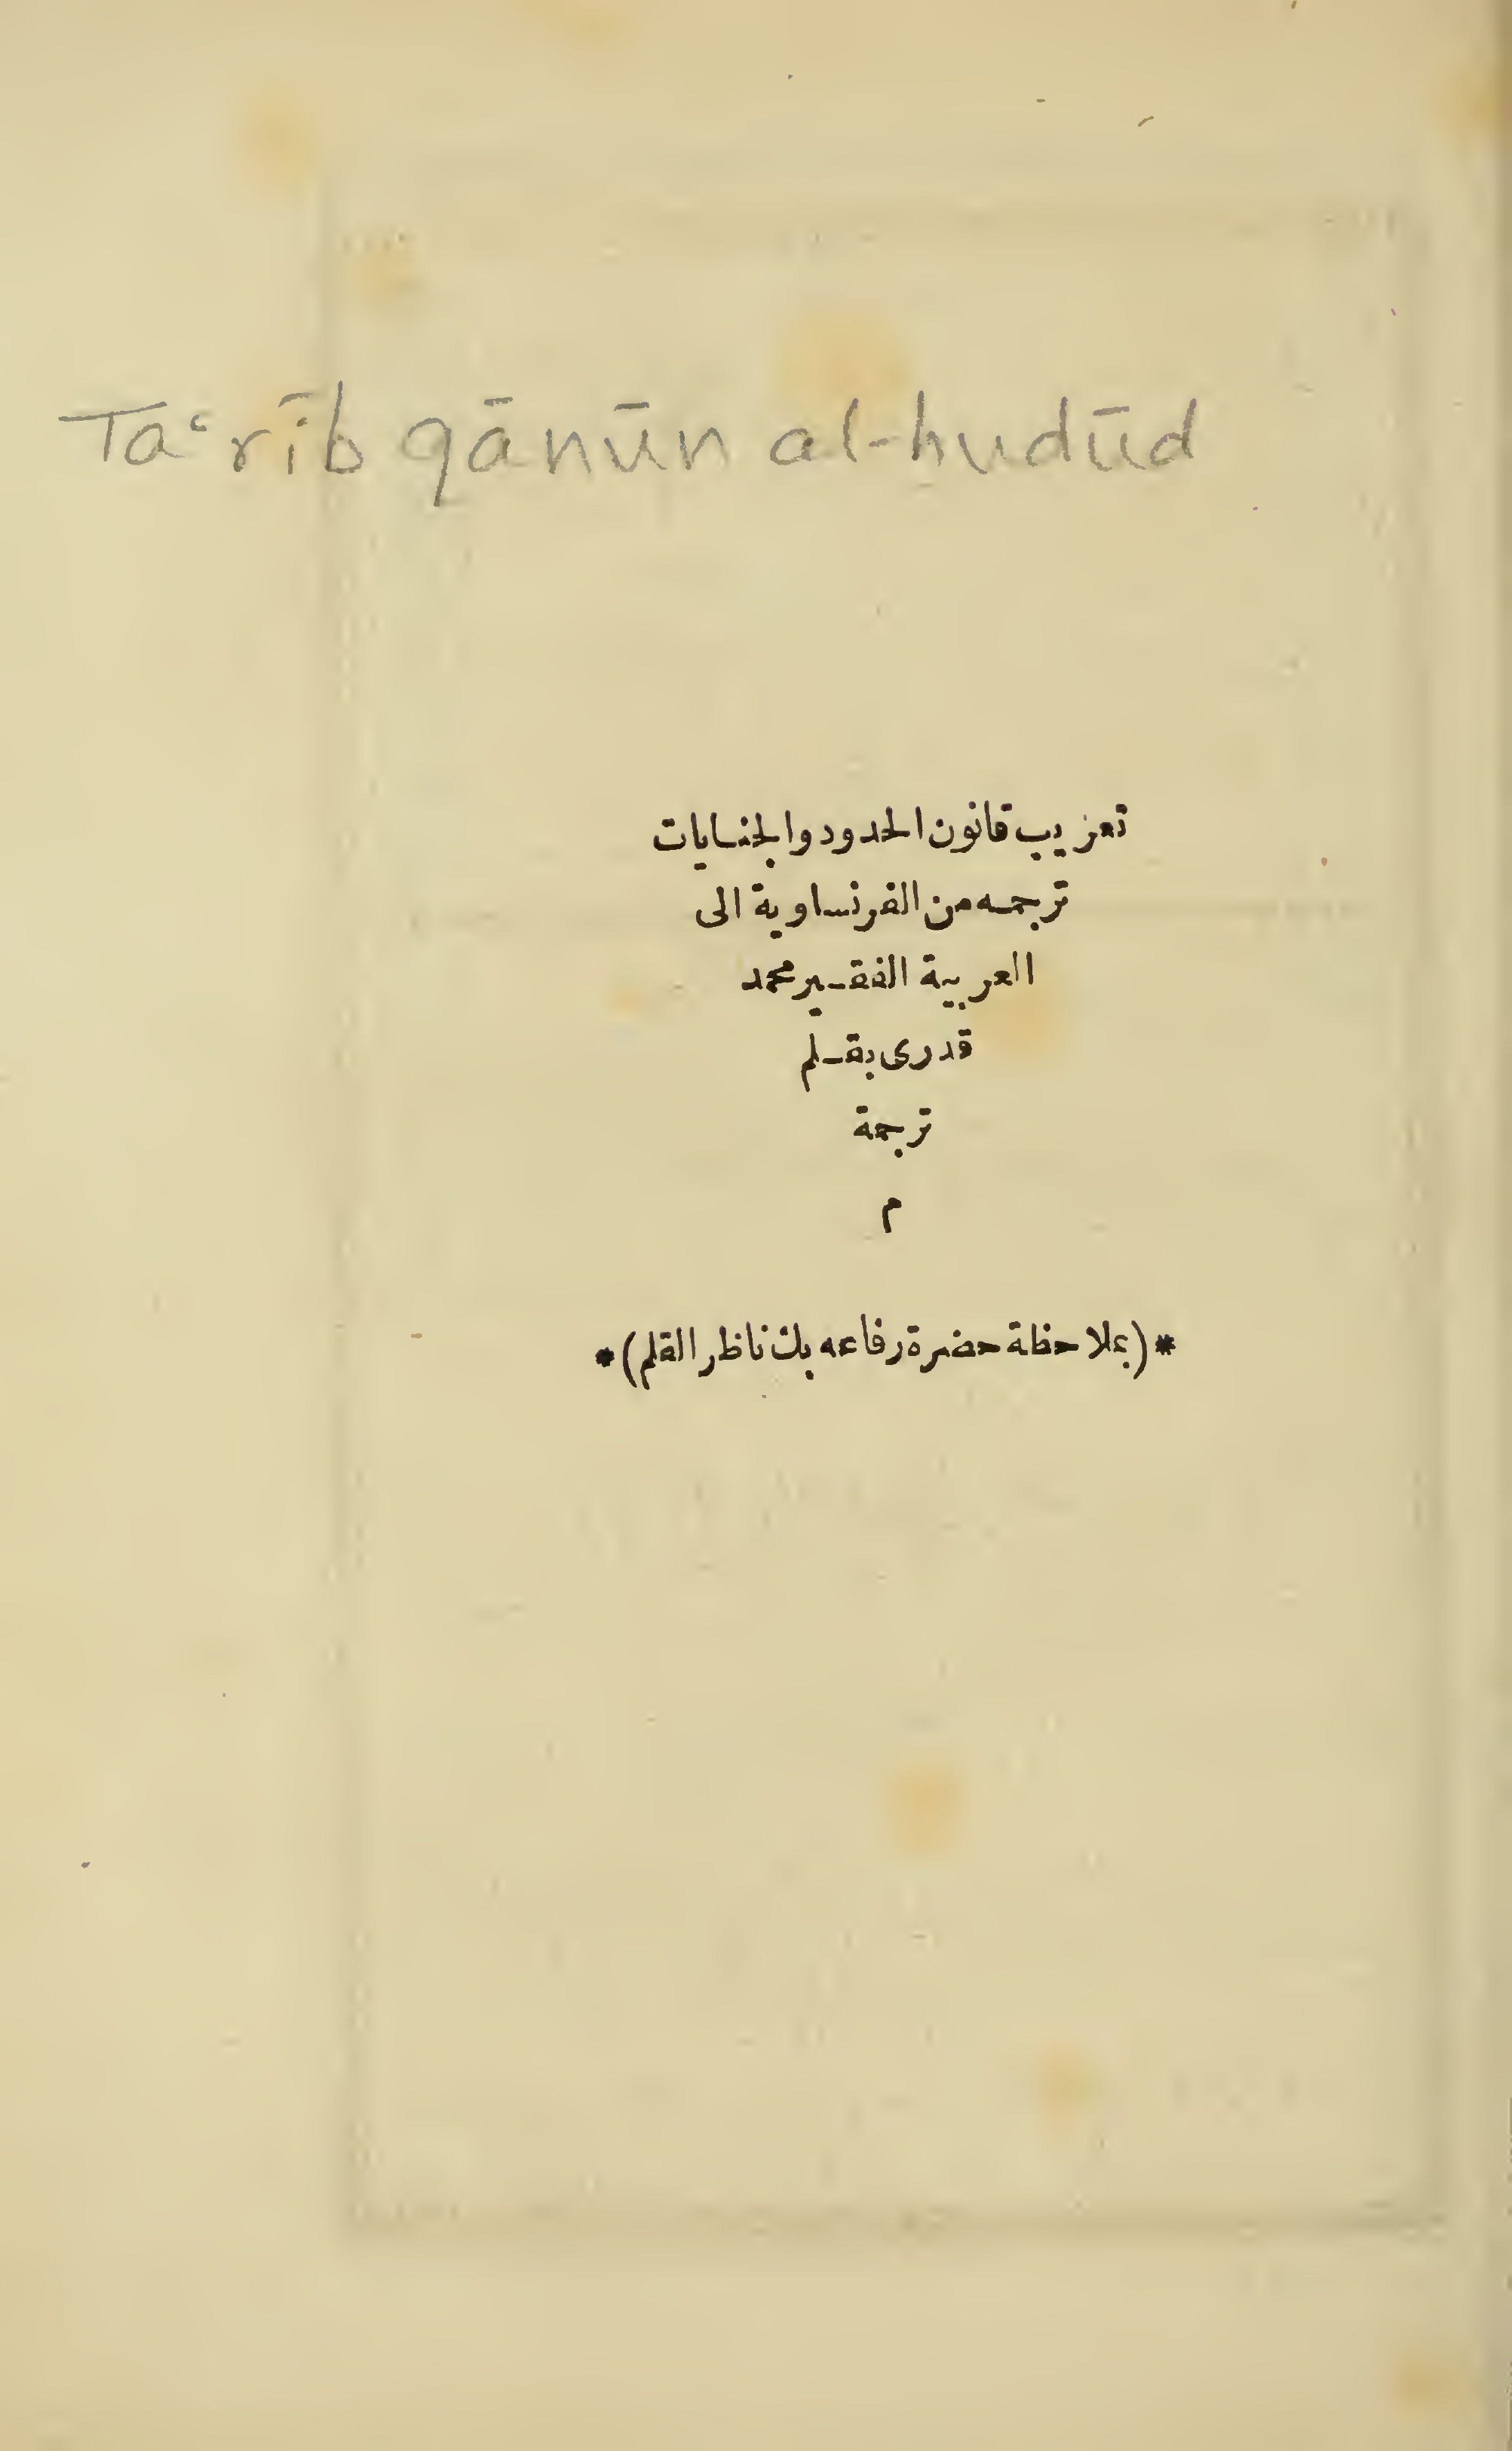 Taʿrīb qānūn al-ḥudūd
تعريب قانون الحدود والجنايات
ترجمه من الفرنساوية الى
العربية الفقير محمد
قدرى بقلم
ترجمة
م
*(بملاحظة حضرة رفاعه بك ناظر القلم)*